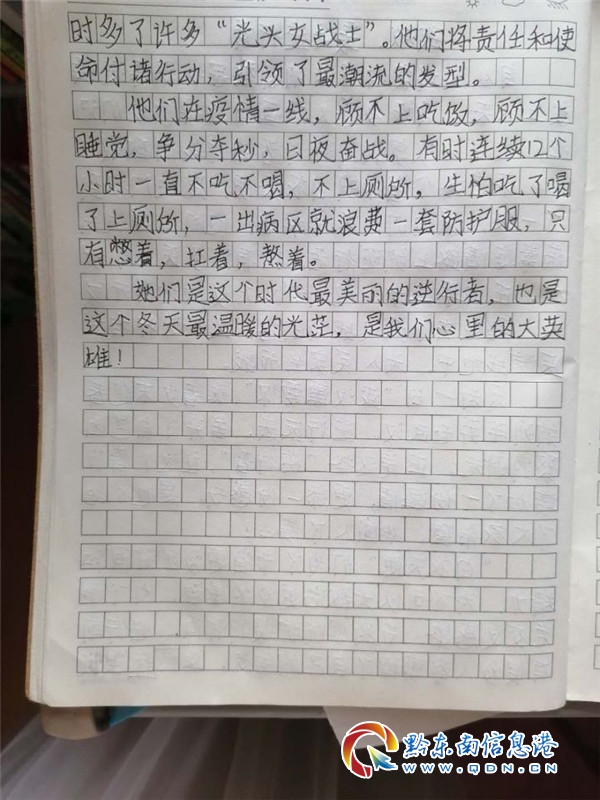 时多了许多“光头女战士”。他们将责任和使
命付诸行动，引领了最潮流的发型。
他们在疫情一线，顾不上吃饭，顾不上
睡觉，争分夺秒，日夜奋战。有时连续12个
小时一直不吃不喝，不上厕所，生怕吃了喝
了上厕所，一出病区就浪费一套防护服，只
有憋着，扛着，熬着。
她们是这个时代最美丽的逆行者，也是
这个冬天最温暖的光茫，是我们心里的大英
雄！
黔东南信息港
WWW.QDN.CN